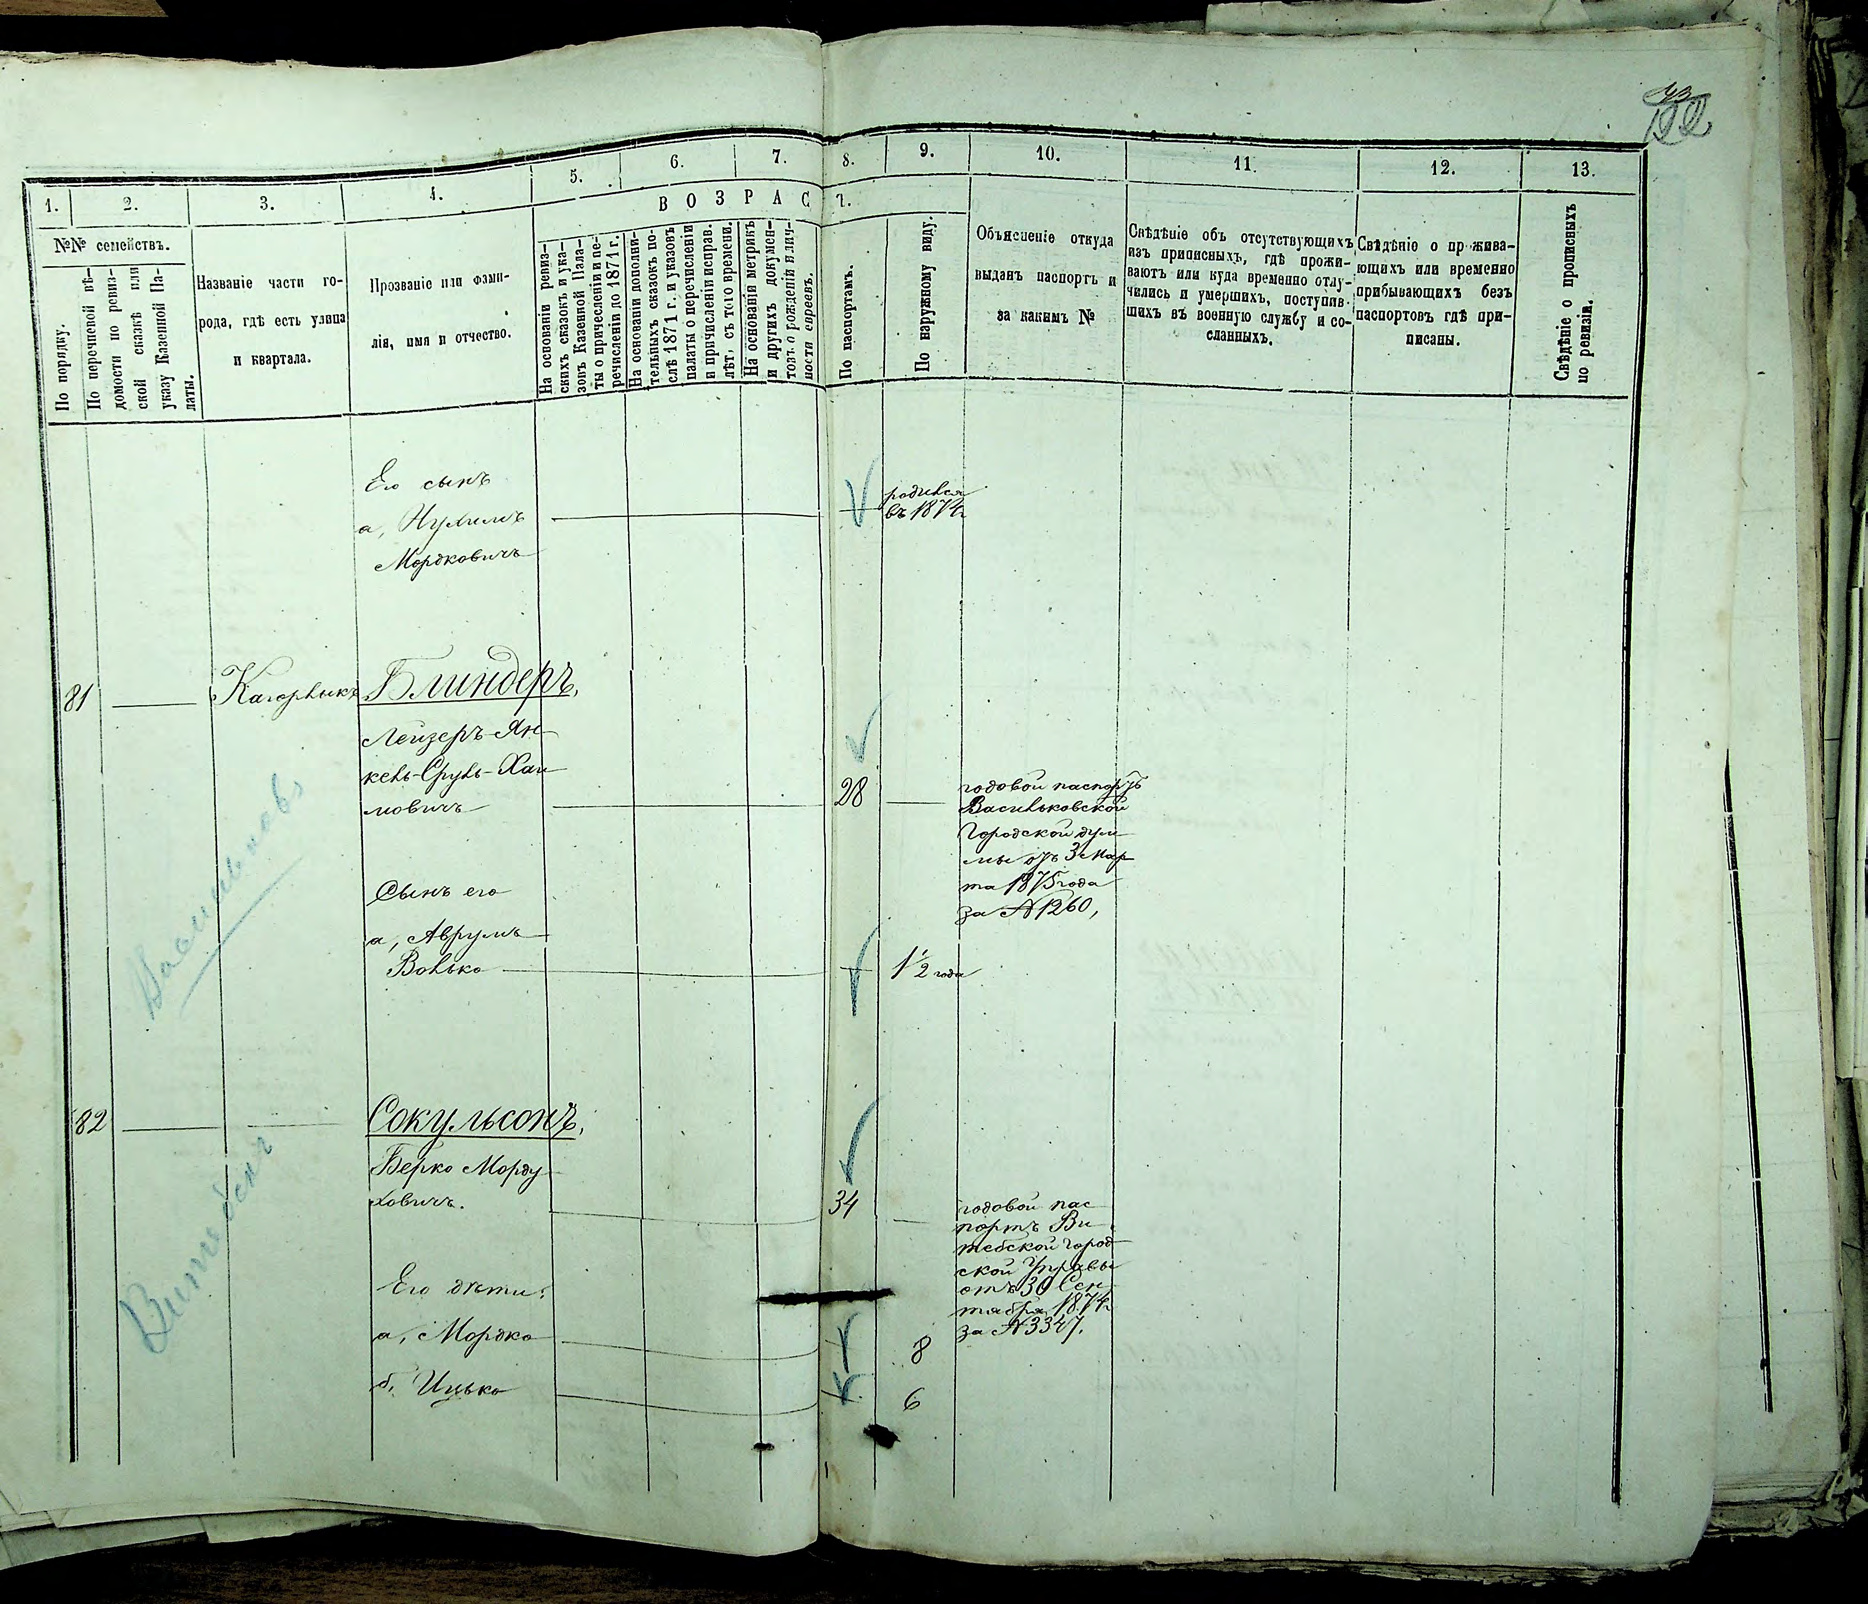 1.
2.
3.
4.
5.
6.
7.
8.
9.
10.
11.
12.
13.
ВОЗРАСТ.
№№ семействъ.
По порядку.
По перечневой вѣ-
домости по ревиз-
ской сказкѣ или
указу Казенной Па-
латы.
Названіе части го-
рода, гдѣ есть улица
и квартала.
Прозваніе или фами-
лія, имя и отчество.
На основаніи ревиз-
скихъ сказокъ и ука-
зовъ Казенной Пала-
ты о причесленіи и пе-
речисленіи до 1871 г.
На основаніи дополни-
тельныхъ сказокъ по-
слѣ 1871 г. и указовъ
палаты о перечисленіи
и причисленіи исправ.
лѣт, съ того времени.
На основаніи метрикъ
и другихъ докумен-
товъ о рожденіи и лич-
ности евреевъ.
По паспортамъ.
По наружному виду.
Объясненіе откуда
выданъ паспортъ и
за какимъ №
Свѣдѣніе объ отсутствующихъ
изъ приписныхъ, гдѣ прожи-
ваютъ или куда временно отлу-
чились и умершихъ, поступив-
шихъ въ военную службу и со-
сланныхъ.
Свѣдѣніе о прожива-
ющихъ или временно
прибывающихъ безъ
паспортовъ гдѣ при-
писаны.
Свѣдѣніе о прописныхъ
по ревизіи.
Его сынъ
а, Нухимъ
Мордковичъ
родился
въ 1874 г
81
Кагарлыкъ
Блиндеръ,
Лейзеръ-Ян-
кель-Сруль-Хаи
мовичъ
28
годовой паспортъ
Васильковской
Городской дум
мы отъ 3 мар
та 1875 года
за № 1260,
Сынъ его
а, Аврумъ
Волько
1 1/2 года
Васильковъ
82
Сокульсонъ,
Берко Морду
ховичъ.
34
годовой пас
портъ Ви
тебской Город
ской Управы
отъ 30 Сен
тября 1874 г
за № 3347.
Его дѣти:
а, Мордко
8
б, Ицько
6
Витебскъ